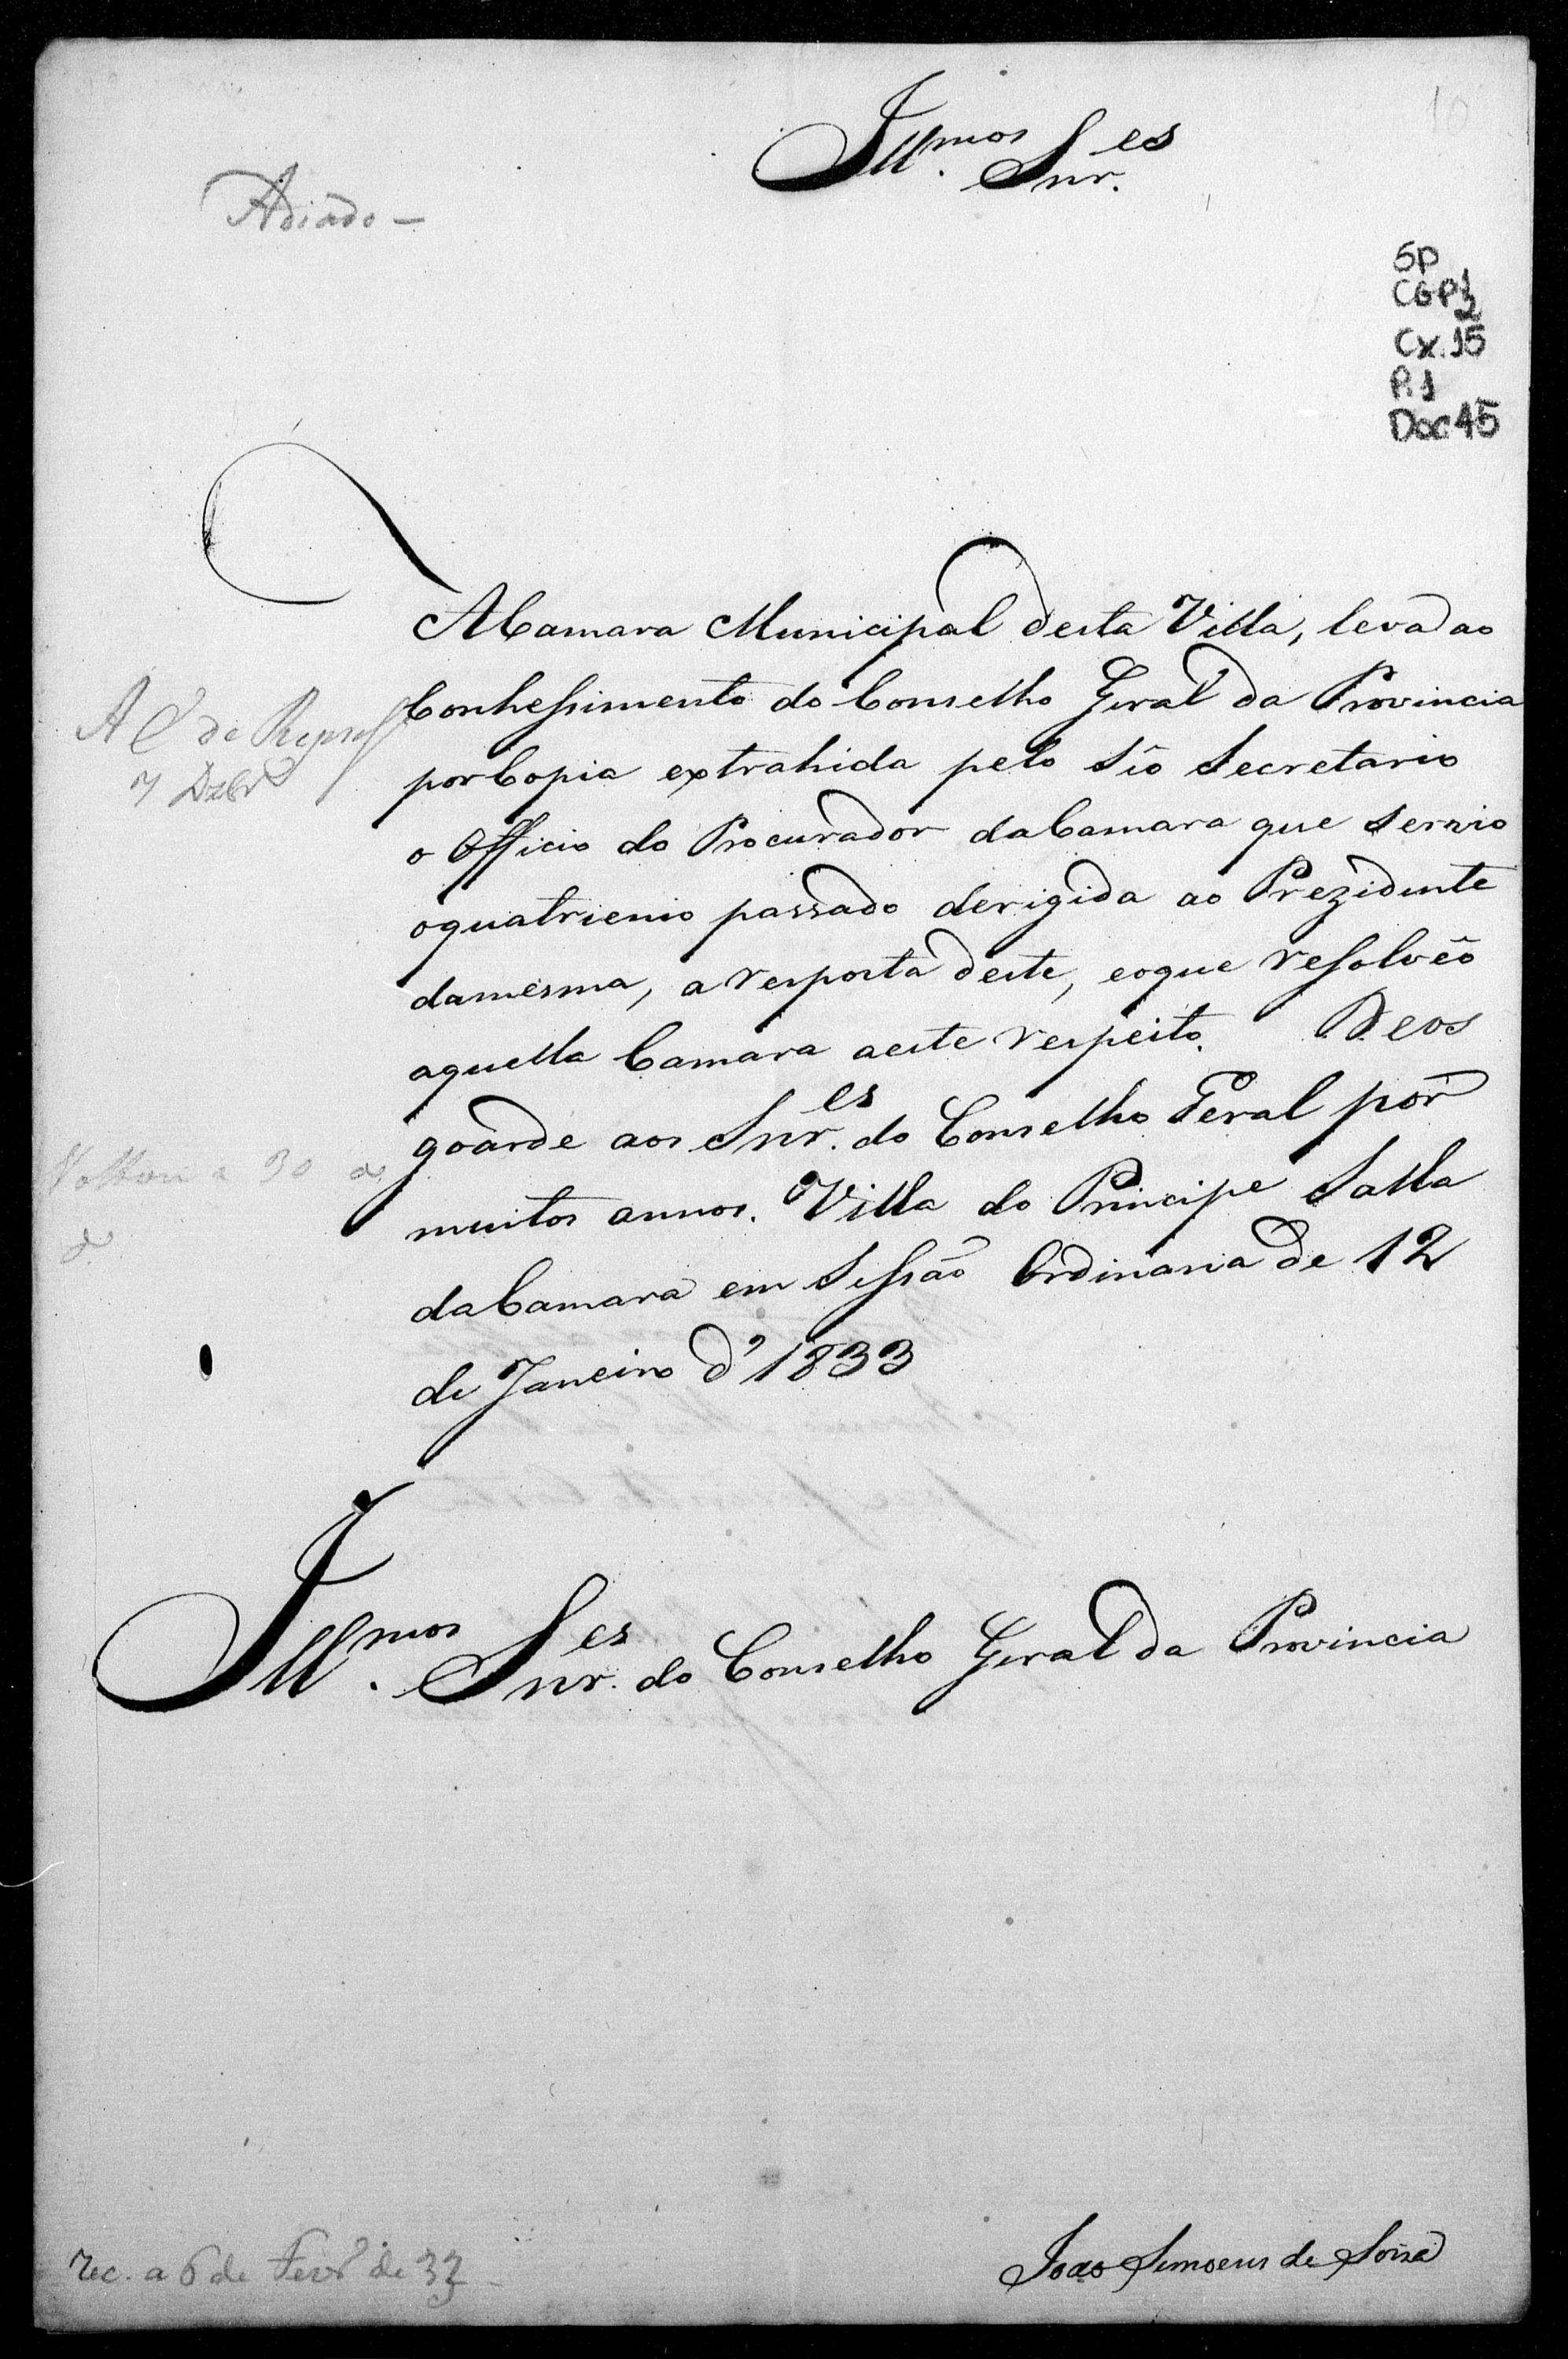 10
Ill.mos Snr.es
Adiado —
SP
CGP1
2
Cx.15
P.1
Doc45
A Camara Municipal desta Villa, leva ao
Conhessimento do Conselho Geral da Provincia
A C de Repres
por Copia extrahida pelo Sêo Secretario
7 Dzbro
o Officio do Procurador da Camara que servio
o quatrienio passado derigida ao Prezidente
da mesma, a resposta deste, eoque resolvêo
aquella Camara aeste respeito. Deos
goarde aos Snr.es do Conselho Geral por
Voltou a 30 de
muitos annos. Villa do Principe Salla
da Camara em Sessão Ordinaria de 12
de Janeiro d' 1833
Ill.mos Snr.es do Conselho Geral da Provincia
rec. a 6 de Fevro de 33
Joao Simoens de Soiza